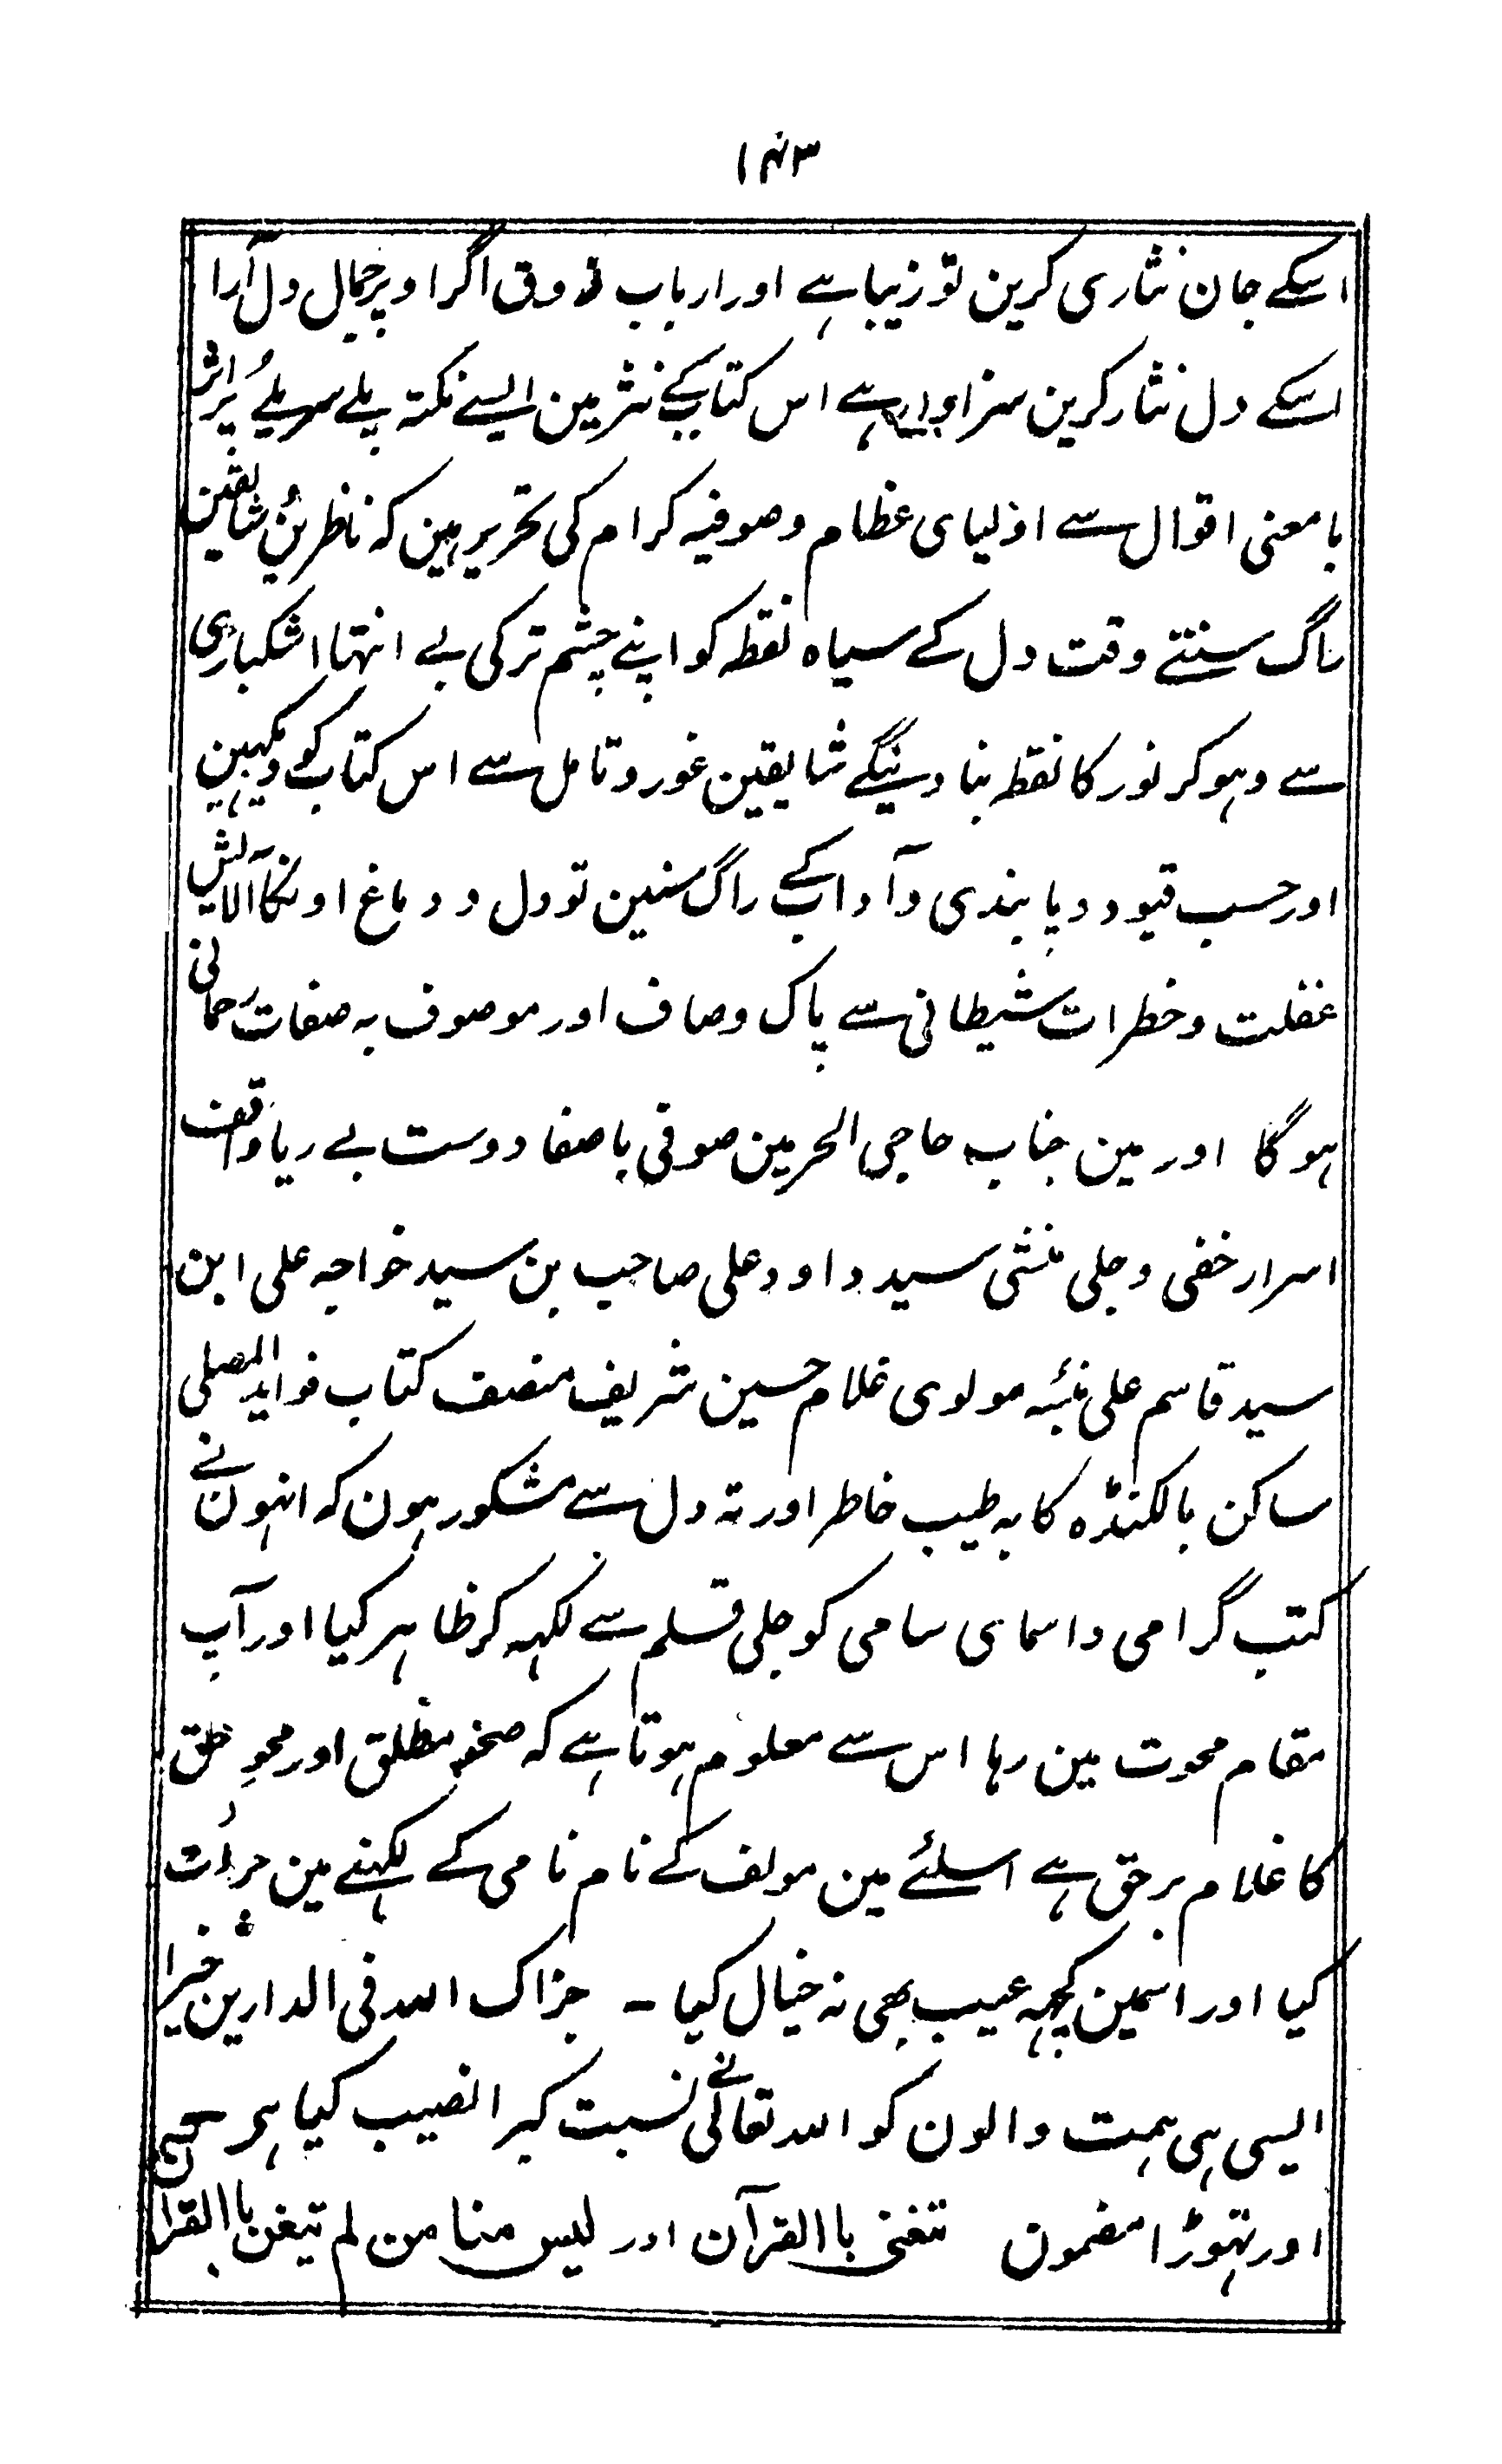 ۱۴۳
اسکے جان نثاری کرین تو زیبا ہے اور ارباب ذوق اگر اوپر جمال دل آرا
اسکے دل نثار کرین سزاوار ہے اس کتاب کے نثر مین ایسے نکتہ پلے سریلے پُر اثر
با معنی اقوال سے اولیای عظام و صوفیہ کرام کی تحریر ہین کہ ناظرین شایقین
راگ سنتے وقت دل کے سیاہ نقطہ کو اپنے چشم تر کی بے انتہا اشکباری
سے دہو کر نور کا نقطہ بنا دینگے شایقین غور و تامل سے اس کتاب کو دیکہین
اور حسب قیود و پابندی و آداب کے راگ سنین تو دل و دماغ اونکا آلایش
غفلت و خطرات شیطانی سے پاک و صاف اور موصوف بہ صفات رحمانی
ہوگا اور مین جناب حاجی الحرمین صوفی باصفا دوست بے ریا واقف
اسرار خفی و جلی منشی سید داود علی صاحب بن سید خواجہ علی ابن
سید قاسم علی نبئسہ مولوی غلام حسین شریف منصف کتاب فواید المصلی
ساکن بالکنڈہ کا بہ طیب خاطر اور تہ دل سے مشکور ہون کہ انہون نے
کتب گرامی و اسمای سامی کو جلی قسلم سے لکہہ کر ظاہر کیا اور آپ
مقام محوت مین رہا اس سے معلوم ہوتا ہے کہ صخوِ مطلق اور محوِ حق
کا غلام برحق ہے اسلئے مین مولف کے نام نامی کے لکہنے مین جرأت
کیا اور اسمین کچہہ عیب بھی نہ خیال کیا - جزاک اللہ فی الدارین خیرا
ایسی ہی ہمت والون کو اللہ تعالٰی نے نسبت کبرا نصیب کیا ہی
اور تہوڑا مضمون تتغنی باالقرآن اور لیس منا من لم یتغن باالقرا